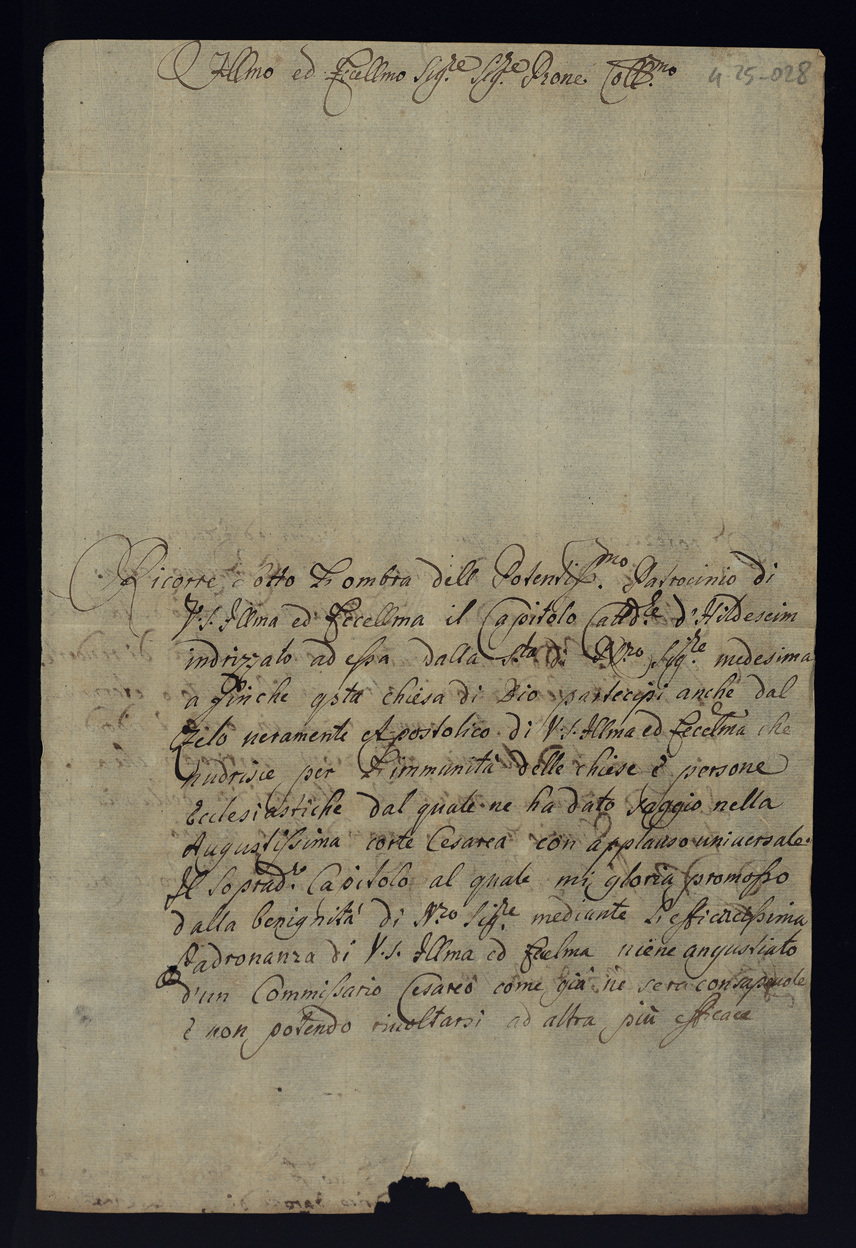 Illmo ed Eccellmo Sig.re Sig.re Prone Coll.mo
4 25-028
Ricorre sotto L'ombra dell Potentiss.mo Patrocinio di
V.S. Illma ed Eccellma il Capitolo Catt.dle d'Hildeseim
indrizzato ad essa dalla S.tà di N.ro Sig.re medesima
affinche qsta chiesa di Dio partecipi anche dal
Zelo veramente Apostolico di V.S. Illma ed Eccelma che
nudrisce per L'immunità delle chiese è persone
Ecclesiastiche dal quale ne ha dato saggio nella
Augustissima corte Cesarea con applauso universale.
Il soprad.o Capitolo al quale mi gloria promosso
dalla benignità di N.ro Sig.re mediante L'efficacissima
Padronanza di V.S. Illma ed Eccelma viene angustiato
d'un Commissario Cesareo come già ne sera consapevole
è non potendo rivoltarsi ad altra più efficace